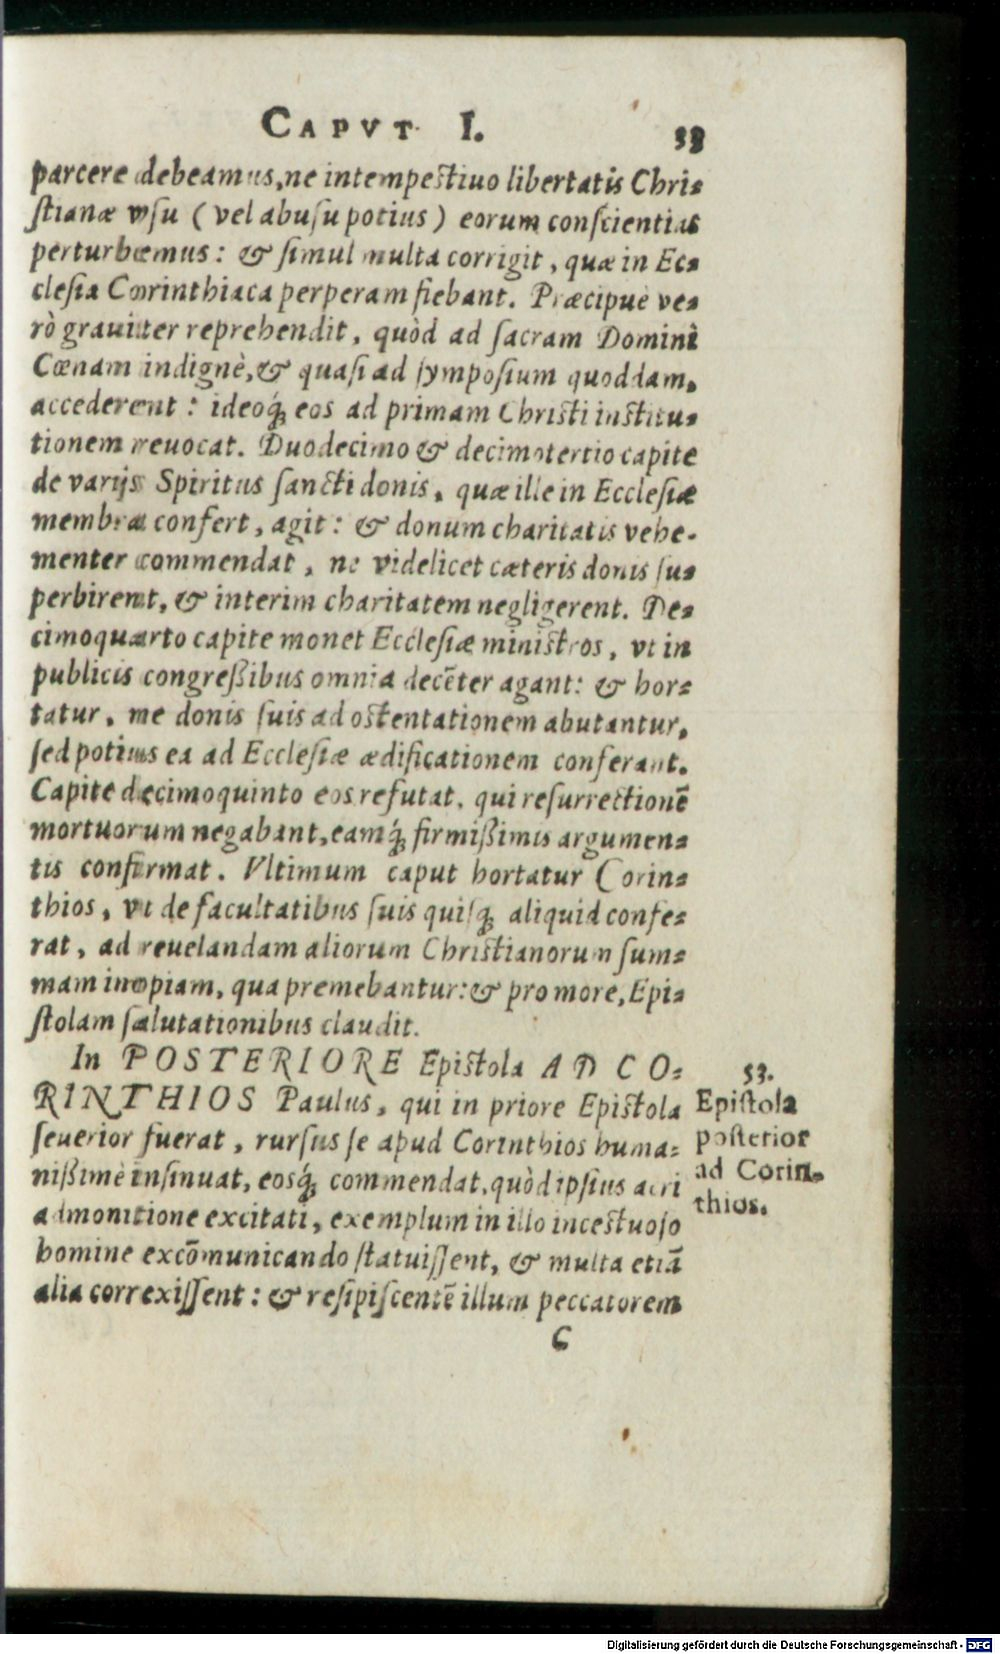 CAPVT I. 33
parcere debeamus, ne intempestiuo libertatis Chri-
stianæ vsu (vel abusu potius) eorum conscientias
perturbemus: & simul multa corrigit, quæ in Ec-
clesia Corinthiaca perperam fiebant. Præcipuè ve-
rò grauiter reprehendit, quòd ad sacram Domini
Cœnam indignè, & quasi ad symposium quoddam,
accederent: ideoq́; eos ad primam Christi institu-
tionem reuocat. Duodecimo & decimotertio capite
de varijs Spiritus sancti donis, quæ ille in Ecclesiæ
membra confert, agit: & donum charitatis vehe-
menter commendat, ne videlicet cæteris donis su-
perbirent, & interim charitatem negligerent. De-
cimoquarto capite monet Ecclesiæ ministros, vt in
publicis congreßibus omnia decẽter agant: & hor-
tatur, ne donis suis ad ostentationem abutantur,
sed potius ea ad Ecclesiæ ædificationem conferant.
Capite decimoquinto eos refutat, qui resurrectionẽ
mortuorum negabant, eamq́; firmißimis argumen-
tis confirmat. Vltimum caput hortatur Corin-
thios, vt de facultatibus suis quisq; aliquid confe-
rat, ad reuelandam aliorum Christianorum sum-
mam inopiam, qua premebantur: & pro more, Epi-
stolam salutationibus claudit.
In POSTERIORE Epistola AD CO-
RINTHIOS Paulus, qui in priore Epistola
seuerior fuerat, rursus se apud Corinthios huma-
nißimè insinuat, eosq́; commendat, quòd ipsius acri
admonitione excitati, exemplum in illo incestuoso
homine excõmunicando statuissent, & multa etiã
alia correxissent: & resipiscentẽ illum peccatorem
C
53.
Epistola
posterior
ad Corin-
thios.
Digitalisierung gefördert durch die Deutsche Forschungsgemeinschaft - DFG